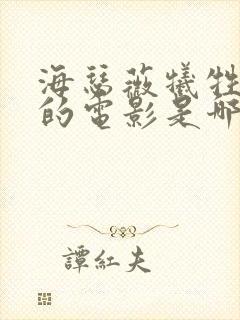 海瑟薇犧牲
的電影是哪
譚紅夫